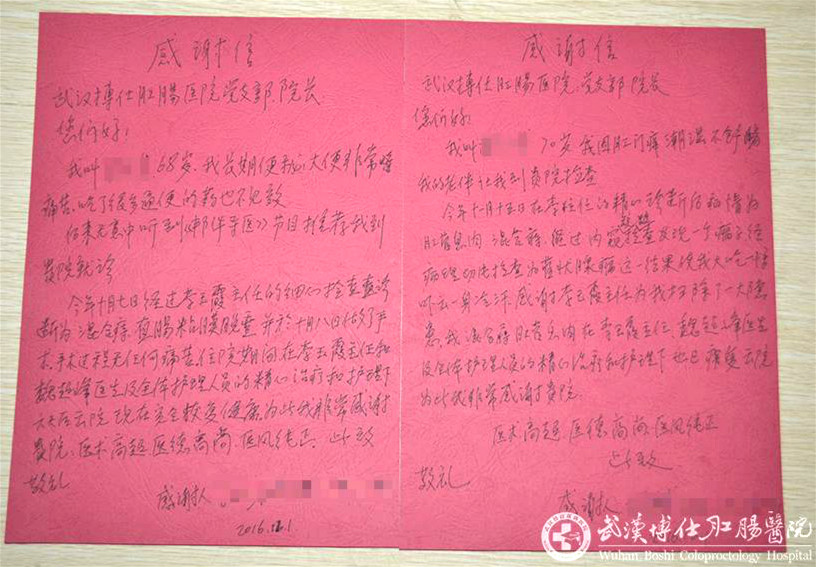 感谢信
武汉博仕肛肠医院党支部.院长
您们好!
我叫 68岁.我长期便秘.大便非常嘈
痛苦.吃了很多通便的药也不见效
后来无意中听到《都伴寻医》节目推荐我到
贵院就诊
今年十月七日经过李玉霞主任的细心检查诊
断为混合痔.直肠粘膜脱垂并於十月八日做了手
术.手术过程无任何痛苦.住院期间在李玉霞主任和
魏超峰医生及全体护理人员的精心治疗和护理下
六天后出院.现在完全恢复健康.为此我非常感谢
贵院.医术高超.医德高尚.医风纯正.此致
敬礼
感谢人
2016.12.1
感谢信
武汉博仕肛肠医院:党支部院长
您们好!
我叫 70岁我因肛门痒潮湿不舒畅
我的老伴让我到贵院检查
今年十一月十五日在李主任的精心诊断后初情为
肛管息肉.混合痔.经过内窥检查发现一个瘤子经
病理切片检查为管状腺瘤这一结果使我大吃一惊
吓出一身冷汗.感谢李玉霞主任为我扫除了一大隐
患.我混合痔肛管息肉在李玉霞主任.魏超峰医生
及全体护理人员的精心治疗和护理下也已康复出院
为此我非常感谢贵院:
医术高超.医德高尚.医风纯正
此致
敬礼
感谢人
武漢博仕肛腸醫院
Wuhan Boshi Coloproctology Hospital